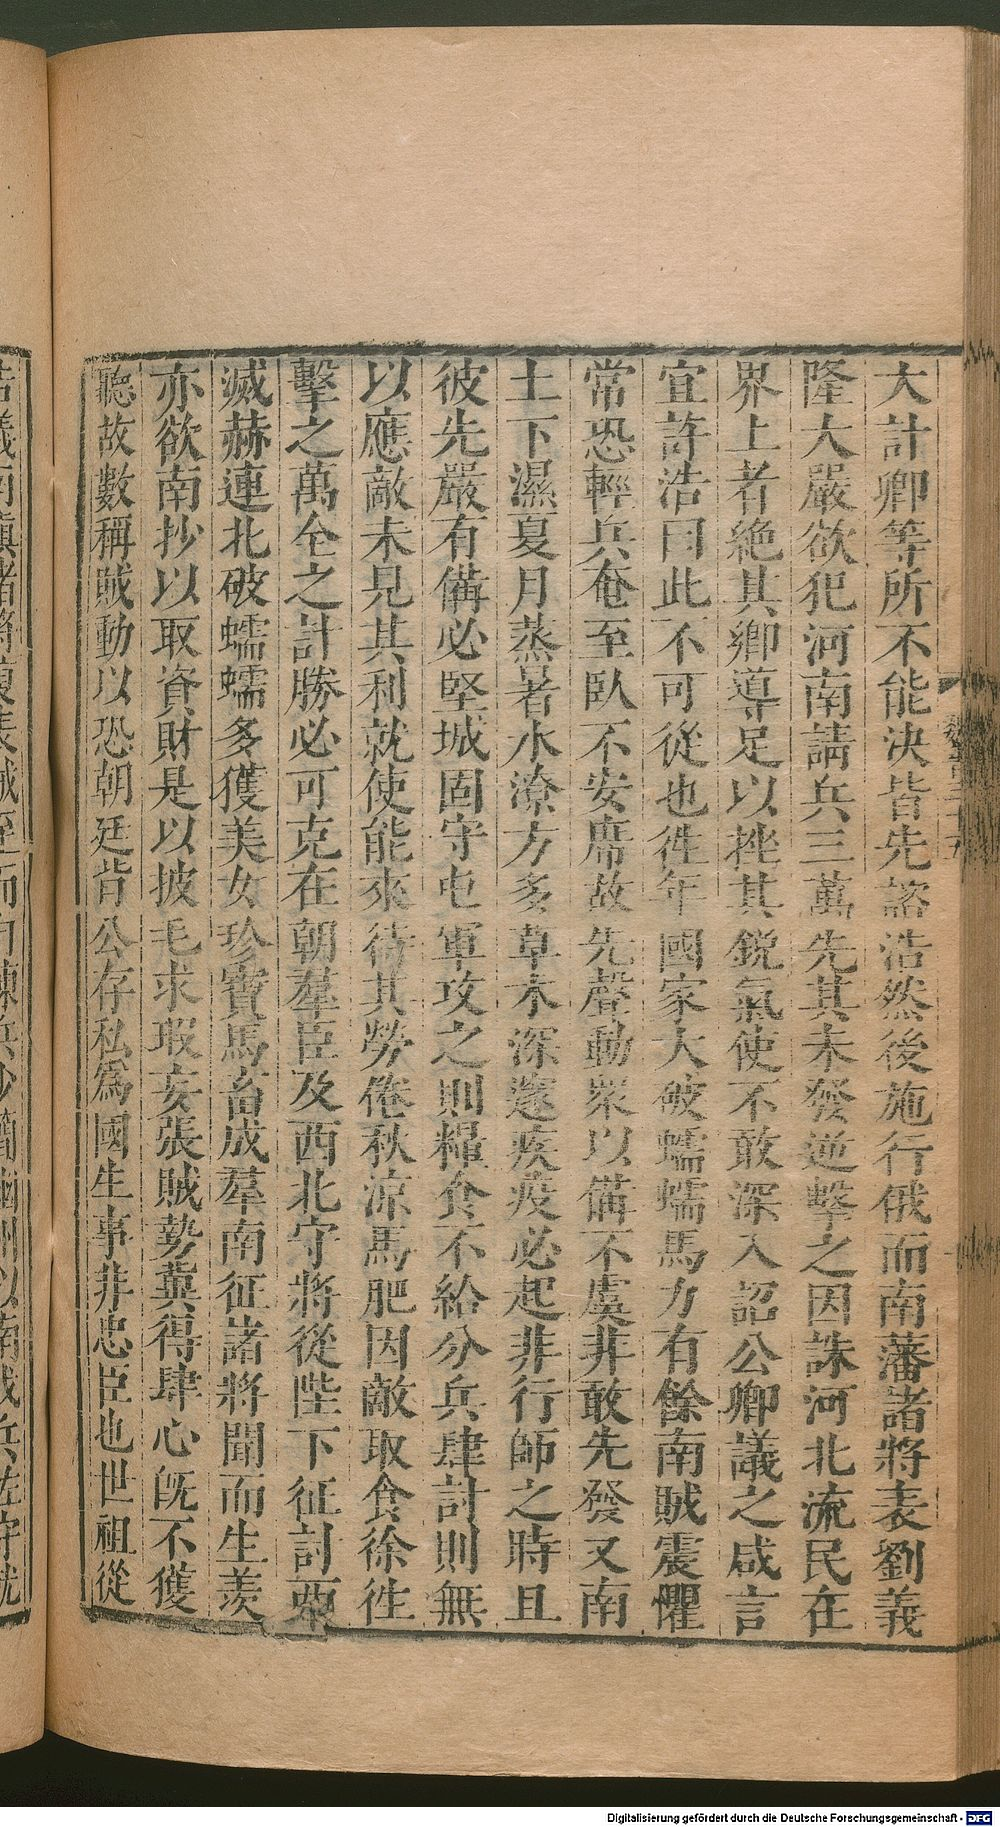 大計卿等所不能決皆先諮浩然後施行俄而南藩諸將表劉義
隆大嚴欲犯河南請兵三萬先其未發逆擊之因誅河北流民在
界上者絕其鄉導足以挫其銳氣使不敢深入詔公卿議之咸言
宜許浩曰此不可從也徃年國家大破蠕蠕馬力有餘南賊震懼
常恐輕兵奄至臥不安席故先聲動衆以備不虞非敢先發又南
土下濕夏月蒸暑水潦方多草木深邃疾疫必起非行師之時且
彼先嚴有備必堅城固守屯軍攻之則糧食不給分兵肆討則無
以應敵未見其利就使能來待其勞倦秋涼馬肥因敵取食徐徃
擊之萬全之計勝必可克在朝羣臣及西北守將從陛下征討西
滅赫連北破蠕蠕多獲美女珍寶馬畜成羣南征諸將聞而生羨
亦欲南抄以取資財是以披毛求瑕妄張賊勢兾得肆心旣不獲
聽故數稱賊動以恐朝廷背公存私爲國生事非忠臣也世祖從
Digitalisierung gefördert durch die Deutsche Forschungsgemeinschaft - DFG